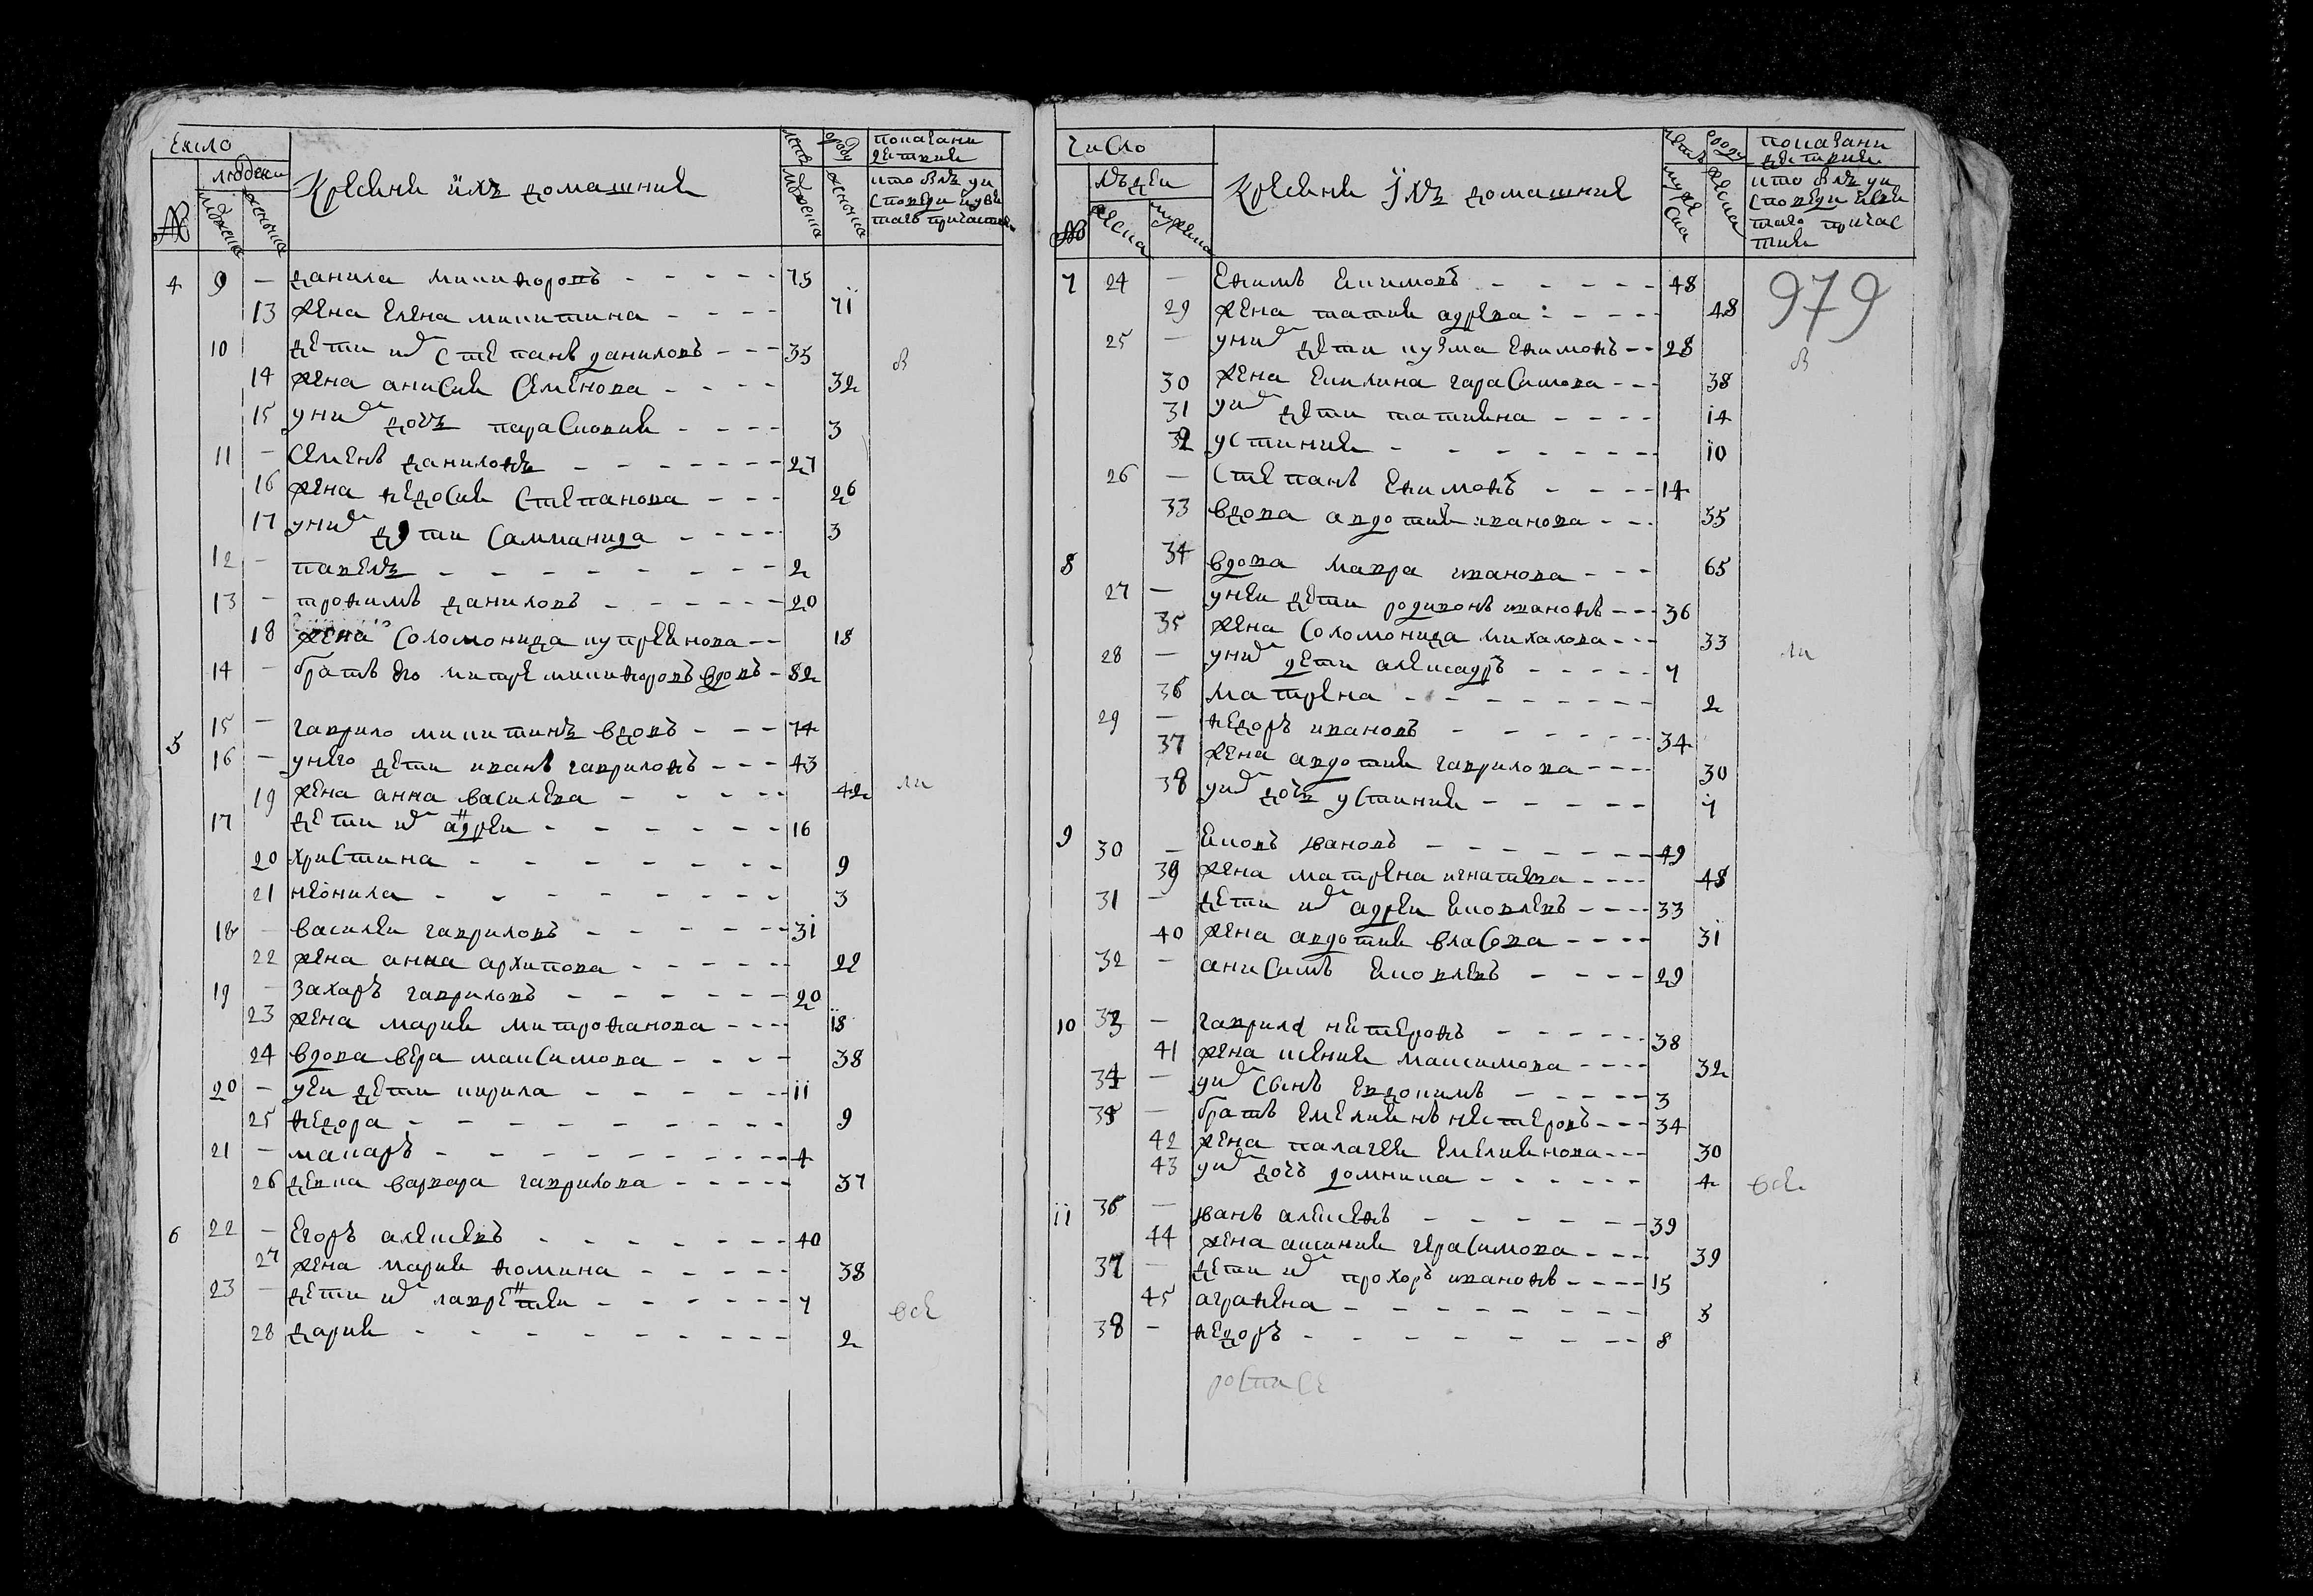 Число
людеи
№
мужеска
женска
Кресяне ихъ домашние
лета
мужеска
роду
женска
показани
детвие
кто былъ уи
споведи исвя
таго причастия
4 9 — данила микифоровъ 75
13 жена елена микитина 71
10 дети их степанъ даниловъ 35
14 жена анисия семенова 32
15 у них дочъ парасковия 3
11 — семенъ даниловъ 27
16 жена федосия степанова 26
17 у них дети саламанида 3
12 — павелъ 2
13 — трофимъ даниловъ 20
18 жена соломонида куприянова 18
14 — братъ его митре микифоровъ вдовъ 82
5 15 — гаврило микитинъ вдовъ 74
16 — у него дети иванъ гавриловъ 43
19 жена анна василева 42
17 дети их адреи 16
20 христина 9
21 неонила 3
18 — василеи гавриловъ 31
22 жена анна архипова 22
19 — захаръ гавриловъ 20
23 жена мария митрофанова 18
24 вдова вера максимова 38
20 — у еи дети кирила 11
25 федора 9
21 — макаръ 4
26 девка варвара гаврилова 37
6 22 — егоръ алексевъ 40
27 жена мария фомина 38
23 — дети их лаврентеи 7
28 дария 2
в
ли
все
число
людеи
№
женска
мужеска
Кресяне ихъ домашние
летъ
муже
ска
роду
женска
показани
детвие
кто былъ уи
споведи исвя
таго причас
тия
979
7 24 — ефимъ екимовъ 48
29 жена татия адрева 48
25 — у них дети кузма ефимовъ 28
30 жена екилина гарасимова 38
31 у их дети татияна 14
32 устиния 10
26 — степанъ ефимовъ 14
33 вдова авдотия иванова 35
8 34 вдова мавра иванова 65
27 — у неи дети родивонъ ивановъ 36
35 жена соломонида михалова 33
28 — у них дети алексадръ 7
36 матрена 2
29 — федоръ ивановъ 34
37 жена авдотия гаврилова 30
38 у их дочъ устиния 7
9 30 — яковъ ивановъ 49
39 жена матрена игнатева 48
31 — дети их адреи яковлевъ 33
40 жена авдотия власова 31
32 — анисимъ яковлевъ 29
10 33 — гаврила нестеровъ 38
41 жена ксения максимова 32
34 — у их сынъ евдокимъ 3
35 — братъ емелиянъ нестеровъ 34
42 жена палагея емелиянова 30
43 у их дочъ домника 4
11 36 — иванъ алексевъ 39
44 жена аксиния герасимова 39
37 — дети их прохоръ ивановъ 15
45 аграфена 3
38 — федоръ 8
в
ли
все
роспсе